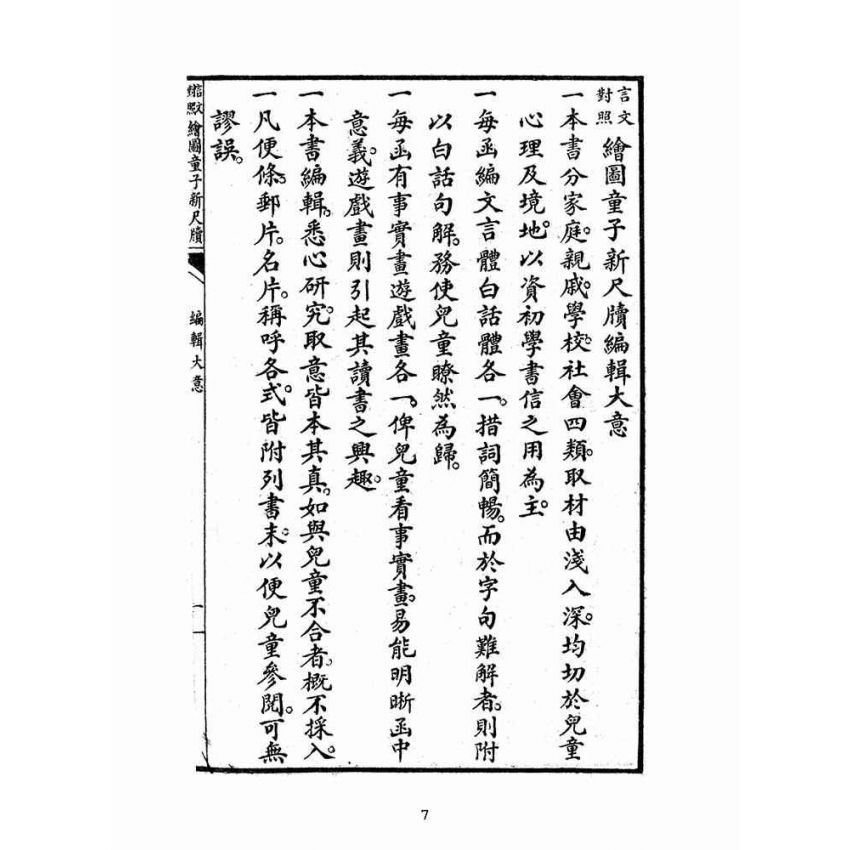 言文對照 繪圖童子新尺牘編輯大意
一本書分家庭。親戚。學校。社會四類。取材由淺入深。均切於兒童
心理及境地。以資初學書信之用為主。
一每函編文言體白話體各一。措詞簡暢。而於字句難解者。則附
以白話句解。務使兒童瞭然為歸。
一每函有事實畫遊戲畫各一。俾兒童看事實畫。易能明晰函中
意義。遊戲畫則引起其讀書之興趣。
一本書編輯。悉心研究。取意皆本其真。如與兒童不合者。概不採入。
一凡便條。郵片。名片。稱呼各式。皆附列書末。以便兒童參閱。可無
謬誤。
言文對照 繪圖童子新尺牘 編輯大意 一
7